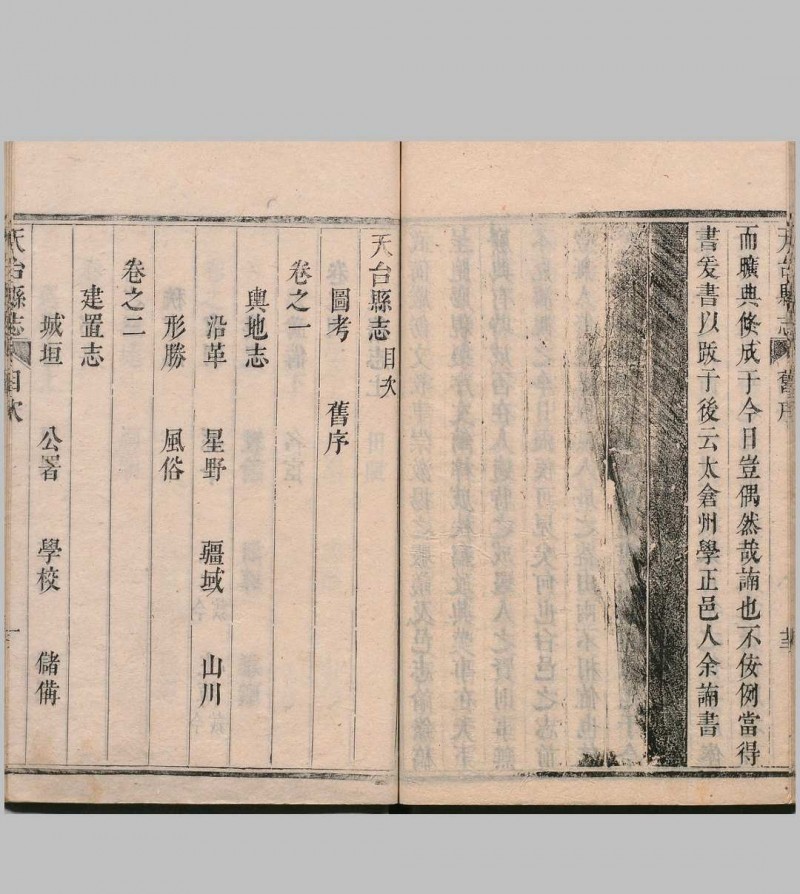 天台縣志 舊序
而曠典倏成于今日豈偶然哉誦也不佞例當得
書爰書以跋于後云太倉州學正邑人余誦書
天台縣志目次
圖考 舊序
卷之一
輿地志
沿革 星野 疆域 山川
形勝 風俗
卷之二
建置志
城垣 公署 學校 儲備
天台縣志 目次 一